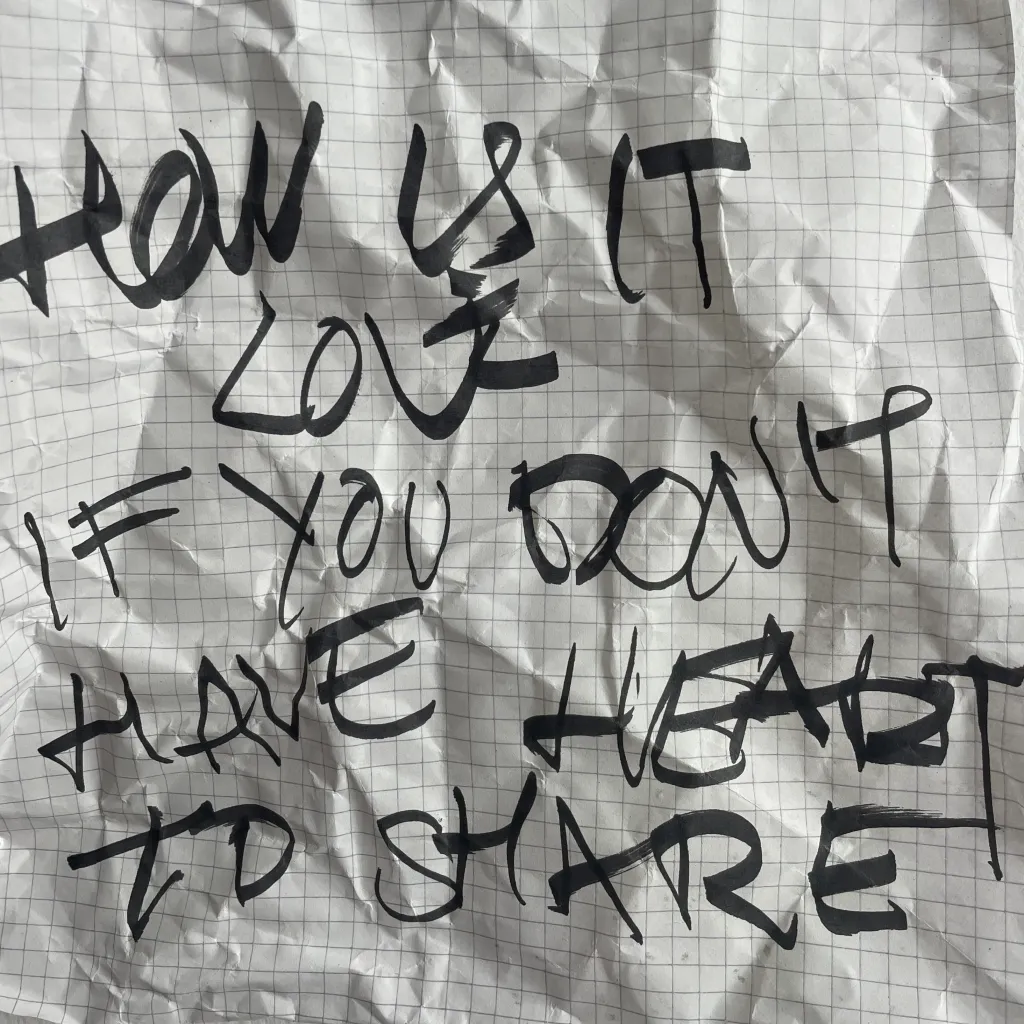 HOW IS IT
LOVE
IF YOU DON'T
HAVE HEART
TO SHARE